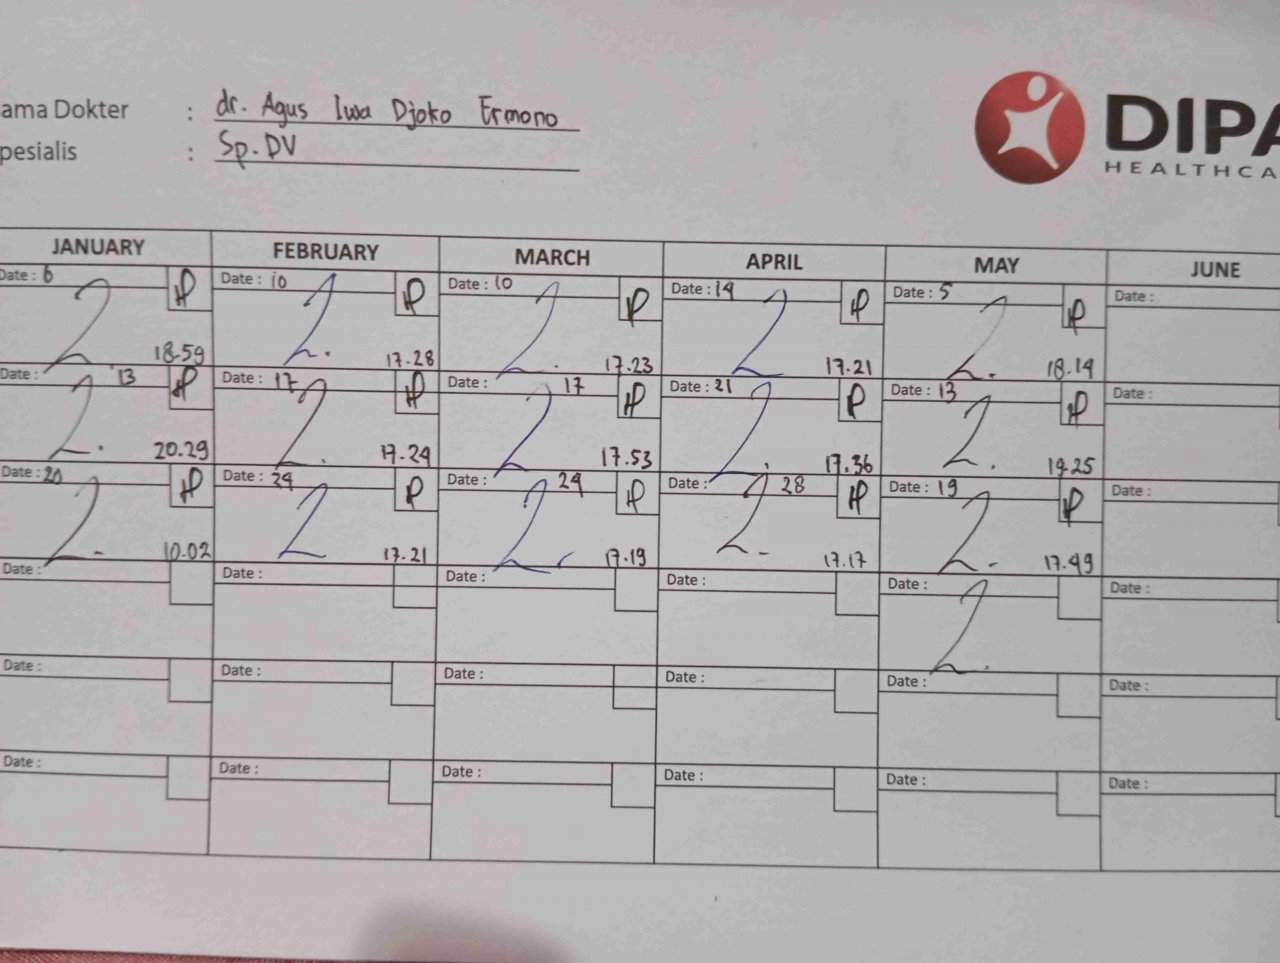 ama Dokter : dr. Agus Iwa Djoko Ermono
pesialis : Sp.DV
DIPA
HEALTHCA
JANUARY FEBRUARY MARCH APRIL MAY JUNE
Date : 6 Date : 10 Date : 10 Date : 14 Date : 5 Date :
18.59 17.28 17.23 17.21 18.14
Date : 13 Date : 17 Date : 17 Date : 21 Date : 13 Date :
20.29 17.24 17.53 17.36 19.25
Date : 20 Date : 24 Date : 24 Date : 28 Date : 19 Date :
10.02 17.21 17.19 17.17 17.49
Date : Date : Date : Date : Date : Date :
Date : Date : Date : Date : Date : Date :
Date : Date : Date : Date : Date : Date :